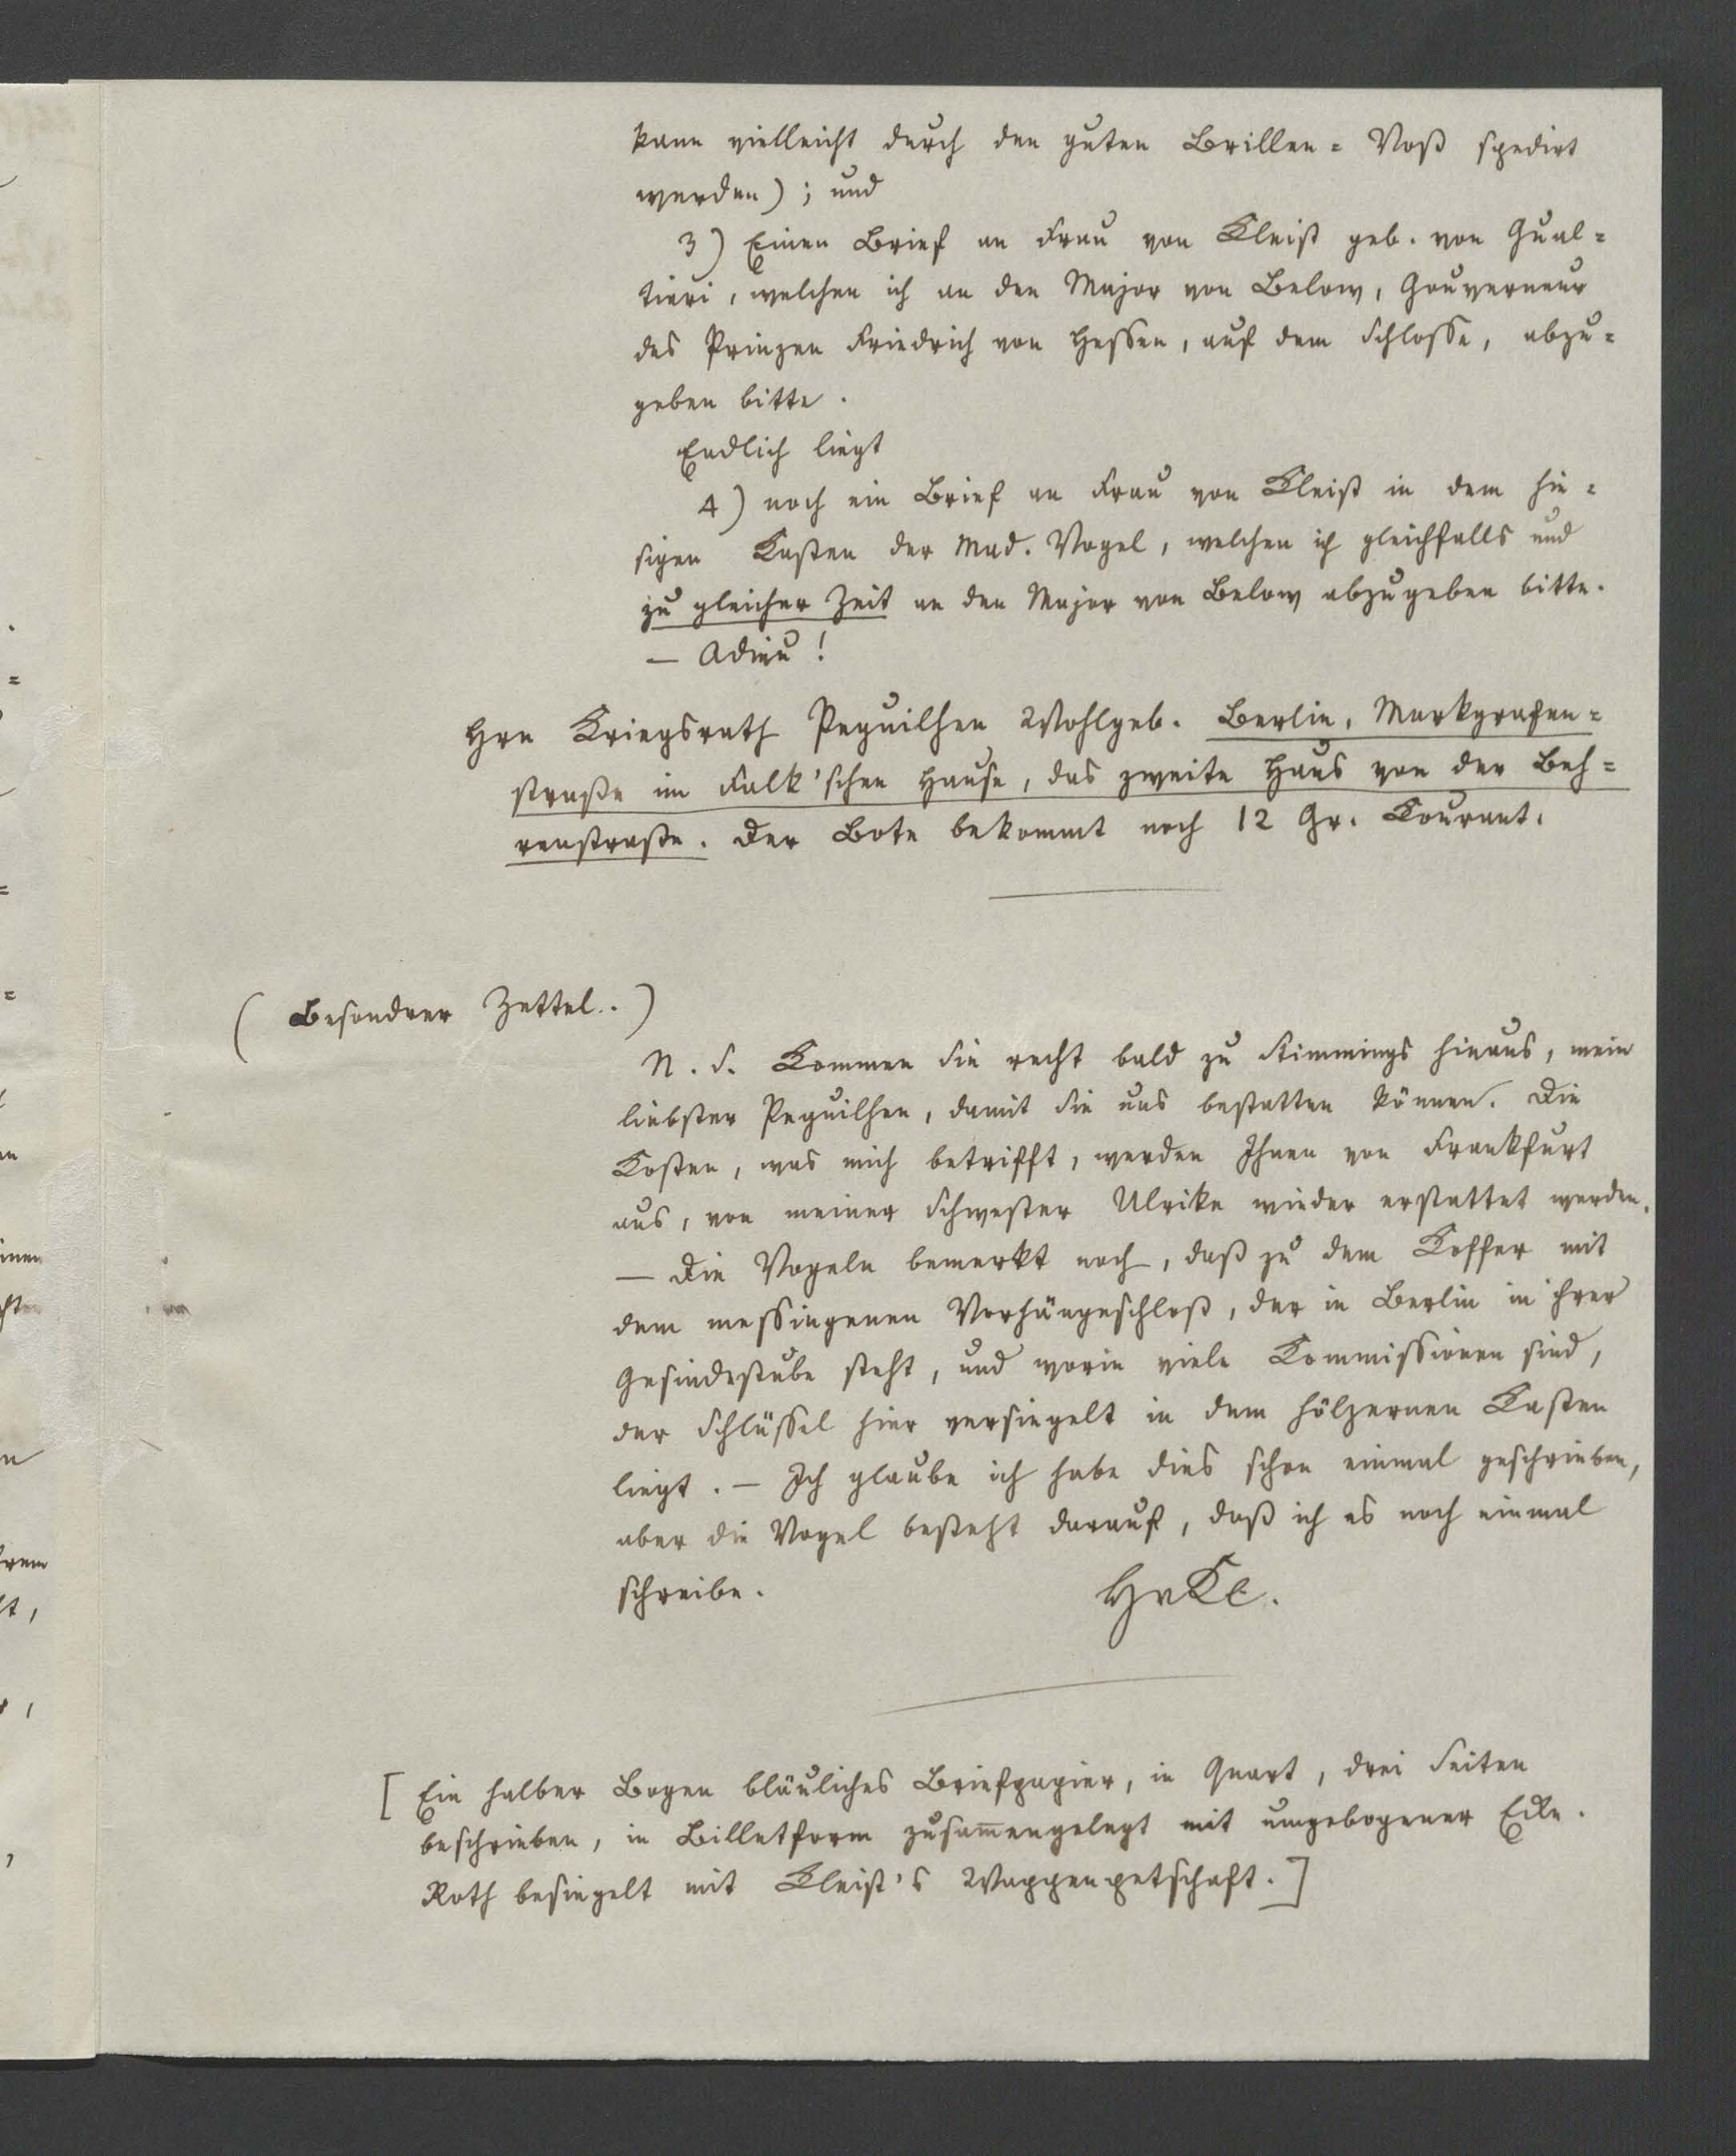 kann vielleicht durch den guten Brillen= Voß spedirt
werden); und
3) Einen Brief an Frau von Kleist geb. von Gual=
tieri, welchen ich an den Major von Below, Gouverneur
des Prinzen Friedrich von Hessen, auf dem Schlosse, abzu=
geben bitte.
Endlich liegt
4) noch ein Brief an Frau von Kleist in dem hie=
sigen Kasten der Mad. Vogel, welchen ich gleichfalls und
zu gleicher Zeit an den Major von Below abzugeben bitte.
— Adieu!
Hrn Kriegsrath Peguilhen Wohlgeb. Berlin, Markgrafen=
straße im Falk'schen Hause, das zweite Haus von der Beh=
renstraße. Der Bote bekommt noch 12 Gr. Kourant.
(Besondrer Zettel.)
N. S. Kommen Sie recht bald zu Stimmings hinaus, mein
liebster Peguilhen, damit Sie uns bestatten können. Die
Kosten, was mich betrifft, werden Ihnen von Frankfurt
aus, von meiner Schwester Ulrike wieder erstattet werden.
— Die Vogeln bemerkt noch, daß zu dem Koffer mit
dem messingenen Vorhängeschloß, der in Berlin in ihrer
Gesindestube steht, und worin viele Kommissionen sind,
der Schlüssel hier versiegelt in dem hölzernen Kasten
liegt. — Ich glaube ich habe dies schon einmal geschrieben,
aber die Vogel besteht darauf, daß ich es noch einmal
schreibe. HvKl.
[Ein halber Bogen bläuliches Briefpapier, in Quart, drei Seiten
beschrieben, in Billetform zusam̅engelegt mit umgebogener Ecke.
Roth besiegelt mit Kleist's Wappenpetschaft.]